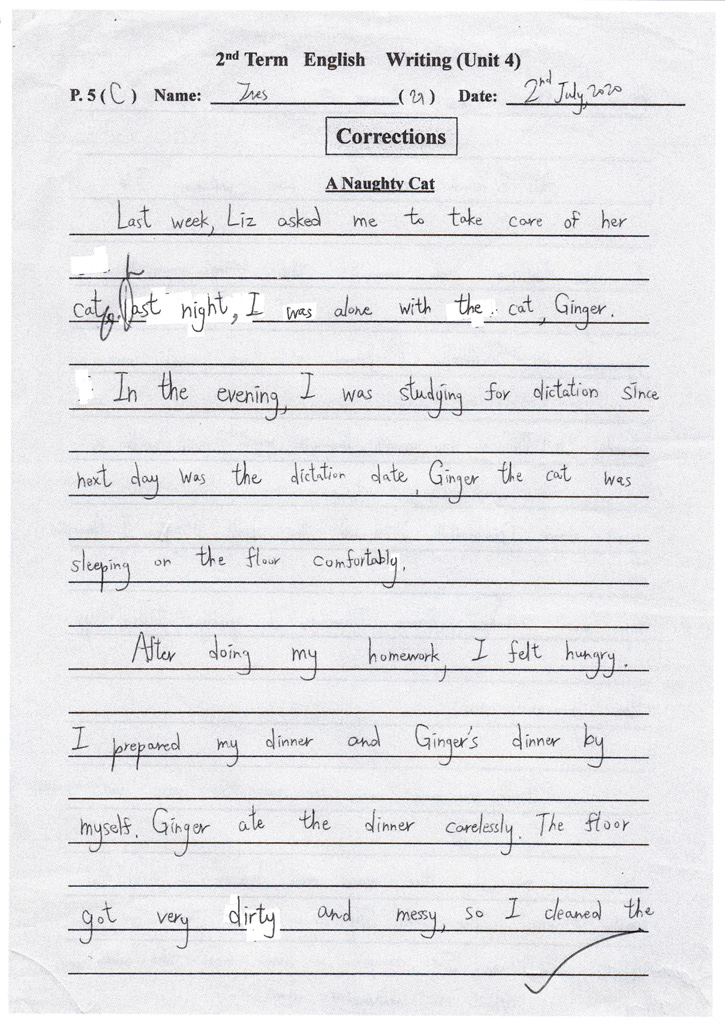 2nd Term English Writing (Unit 4)
P. 5 (C) Name: Ines (21) Date: 2nd July, 2020
Corrections
A Naughty Cat
Last week, Liz asked me to take care of her
cat. Last night, I was alone with the cat, Ginger.
In the evening, I was studying for dictation since
next day was the dictation date, Ginger the cat was
sleeping on the floor comfortably.
After doing my homework, I felt hungry.
I prepared my dinner and Ginger's dinner by
myself. Ginger ate the dinner carelessly. The floor
got very dirty and messy, so I cleaned the